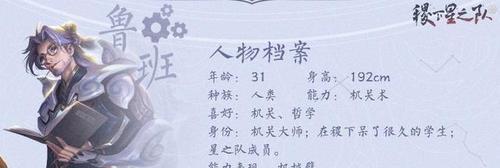 鲁班
稷下星之队
人物档案
年龄：31 身高：192cm
种族：人类 能力：机关术
喜好：机关、哲学
身份：机关大师；在稷下呆了很久的学生；
星之队成员。